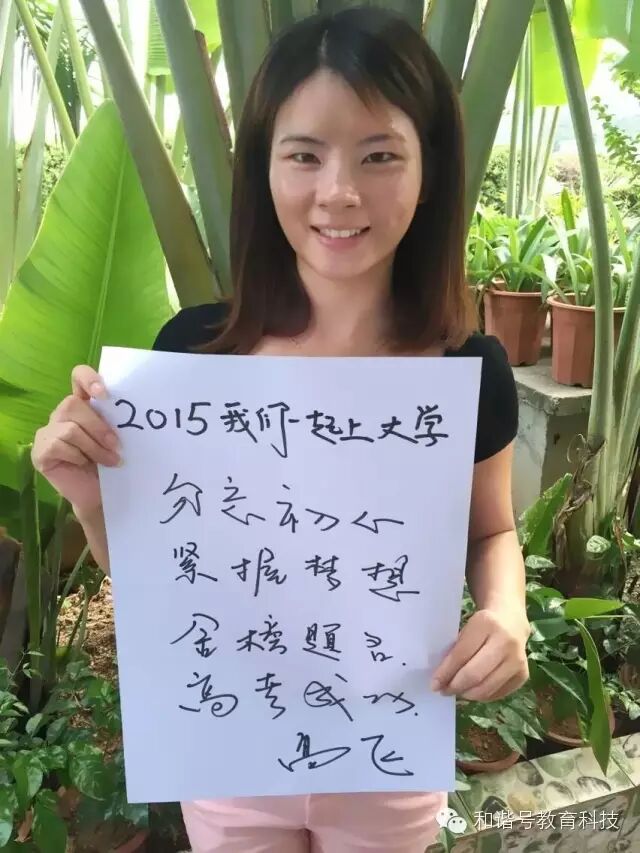 2015我们一起上大学
勿忘初心
紧握梦想
金榜题名.
高考成功.
高飞
和谐号教育科技